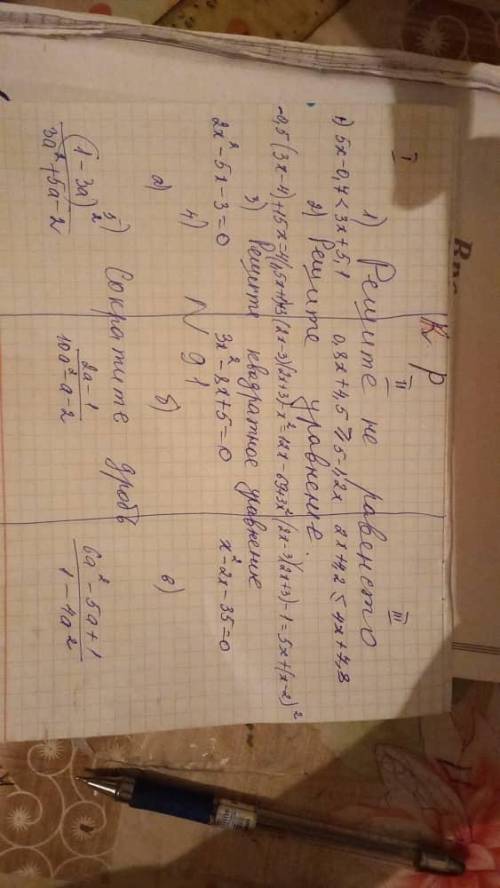 К. Р
I II III
1) Решите не равенство
1) 5x-0,7<3x+5,1 0,8x+4,5≥5-1,2x 2x+4,2≤4x+7,8
2) Решите уравнение
-0,5(3x-4)+15x=4(1,5x+1)+3 (2x-3)(2x+3)-x²=12x-69+3x² (2x-3)(2x+3)-1=5x+(x-2)²
3) Решите квадратное уравнение
2x²-5x-3=0 3x²-8x+5=0 x²-2x-35=0
4) N 91
а) б) в)
5) Сократите дробь
(1-3a)²/3a²+5a-2 2a-1/10a²-a-2 6a²-5a+1/1-4a²